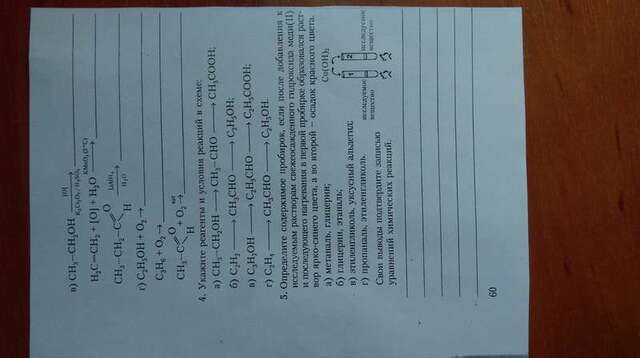 в) CH₃—CH₂OH [O] K₂Cr₂O₇, H₂SO₄ →
H₂C=CH₂ + [O] + H₂O KMnO₄ (t °C) →
CH₃—CH₂—C O H H₂O →
г) C₂H₅OH + O₂ →
C₂H₆ + O₂ →
CH₃—C O H + O₂ кат →
4. Укажите реагенты и условия реакций в схеме:
а) CH₃—CH₂OH → CH₃—CHO → CH₃COOH;
б) C₂H₂ → CH₃CHO → C₂H₅OH;
в) C₃H₇OH → C₂H₅CHO → C₂H₅COOH;
г) C₂H₄ → CH₃CHO → C₂H₅OH.
5. Определите содержимое пробирок, если после добавления к
исследуемым растворам свежеосажденного гидроксида меди(II)
и последующего нагревания в первой пробирке образовался раст-
вор ярко-синего цвета, а во второй – осадок красного цвета.
а) метаналь, глицерин;
б) глицерин, этаналь;
в) этиленгликоль, уксусный альдегид;
г) пропаналь, этиленгликоль.
Свои выводы подтвердите записью
уравнений химических реакций.
Cu(OH)₂
1 2
исследуемое
вещество
исследуемое
вещество
60